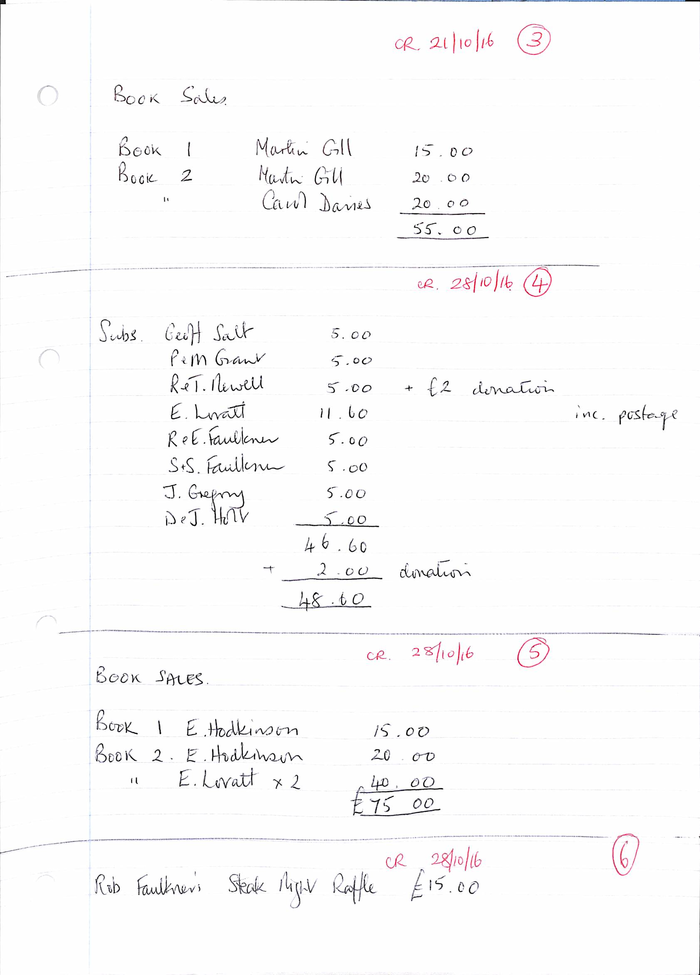 CR. 21/10/16 3
Book Sales
Book 1 Martin Gill 15.00
Book 2 Martin Gill 20.00
" Carol Davies 20.00
55.00
CR. 28/10/16 4
Subs. Geoff Salt 5.00
P & M Grant 5.00
R & T. Newell 5.00 + £2 donation
E. Lovatt 11.60 inc. postage
R & E. Faulkner 5.00
S + S. Faulkner 5.00
J. Gregory 5.00
D & J. 5.00
46.60
+ 2.00 donation
48.60
CR. 28/10/16 5
BOOK SALES.
Book 1 E. Hodkinson 15.00
Book 2. E. Hodkinson 20.00
" E. Lovatt x 2 40.00
£75 00
CR 28/10/16 6
Rob Faulkner's Steak Night Raffle £15.00